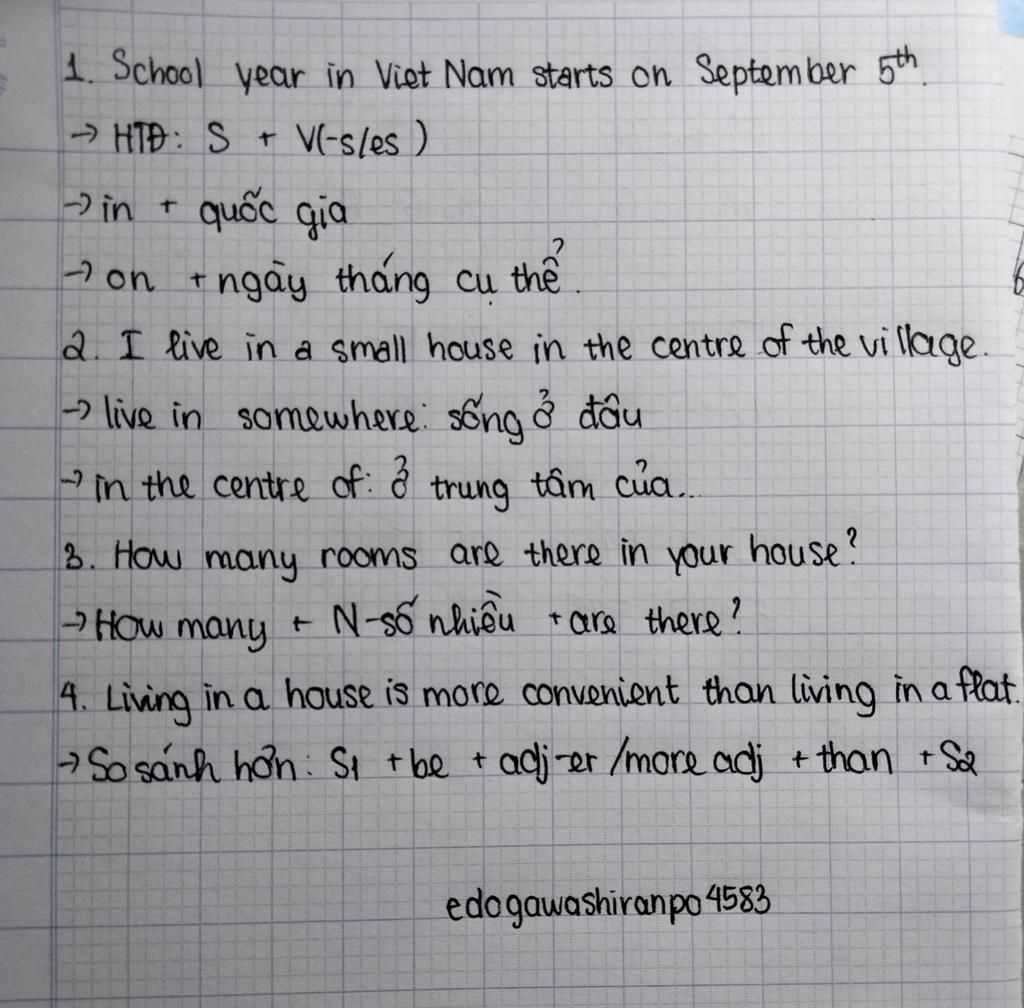 1. School year in Viet Nam starts on September 5th.
→ HTĐ: S + V(-s/es)
→ in + quốc gia
→ on + ngày tháng cụ thể.
2. I live in a small house in the centre of the village.
→ live in somewhere: sống ở đâu
→ in the centre of: ở trung tâm của...
3. How many rooms are there in your house?
→ How many + N-số nhiều + are there?
4. Living in a house is more convenient than living in a flat.
→ So sánh hơn: S1 + be + adj-er /more adj + than + S2
edogawashiranpo4583